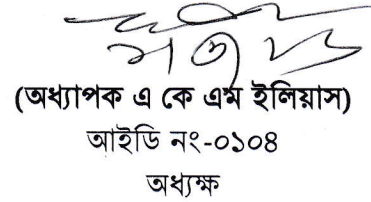 (অধ্যাপক এ কে এম ইলিয়াস)
আইডি নং-০১০৪
অধ্যক্ষ